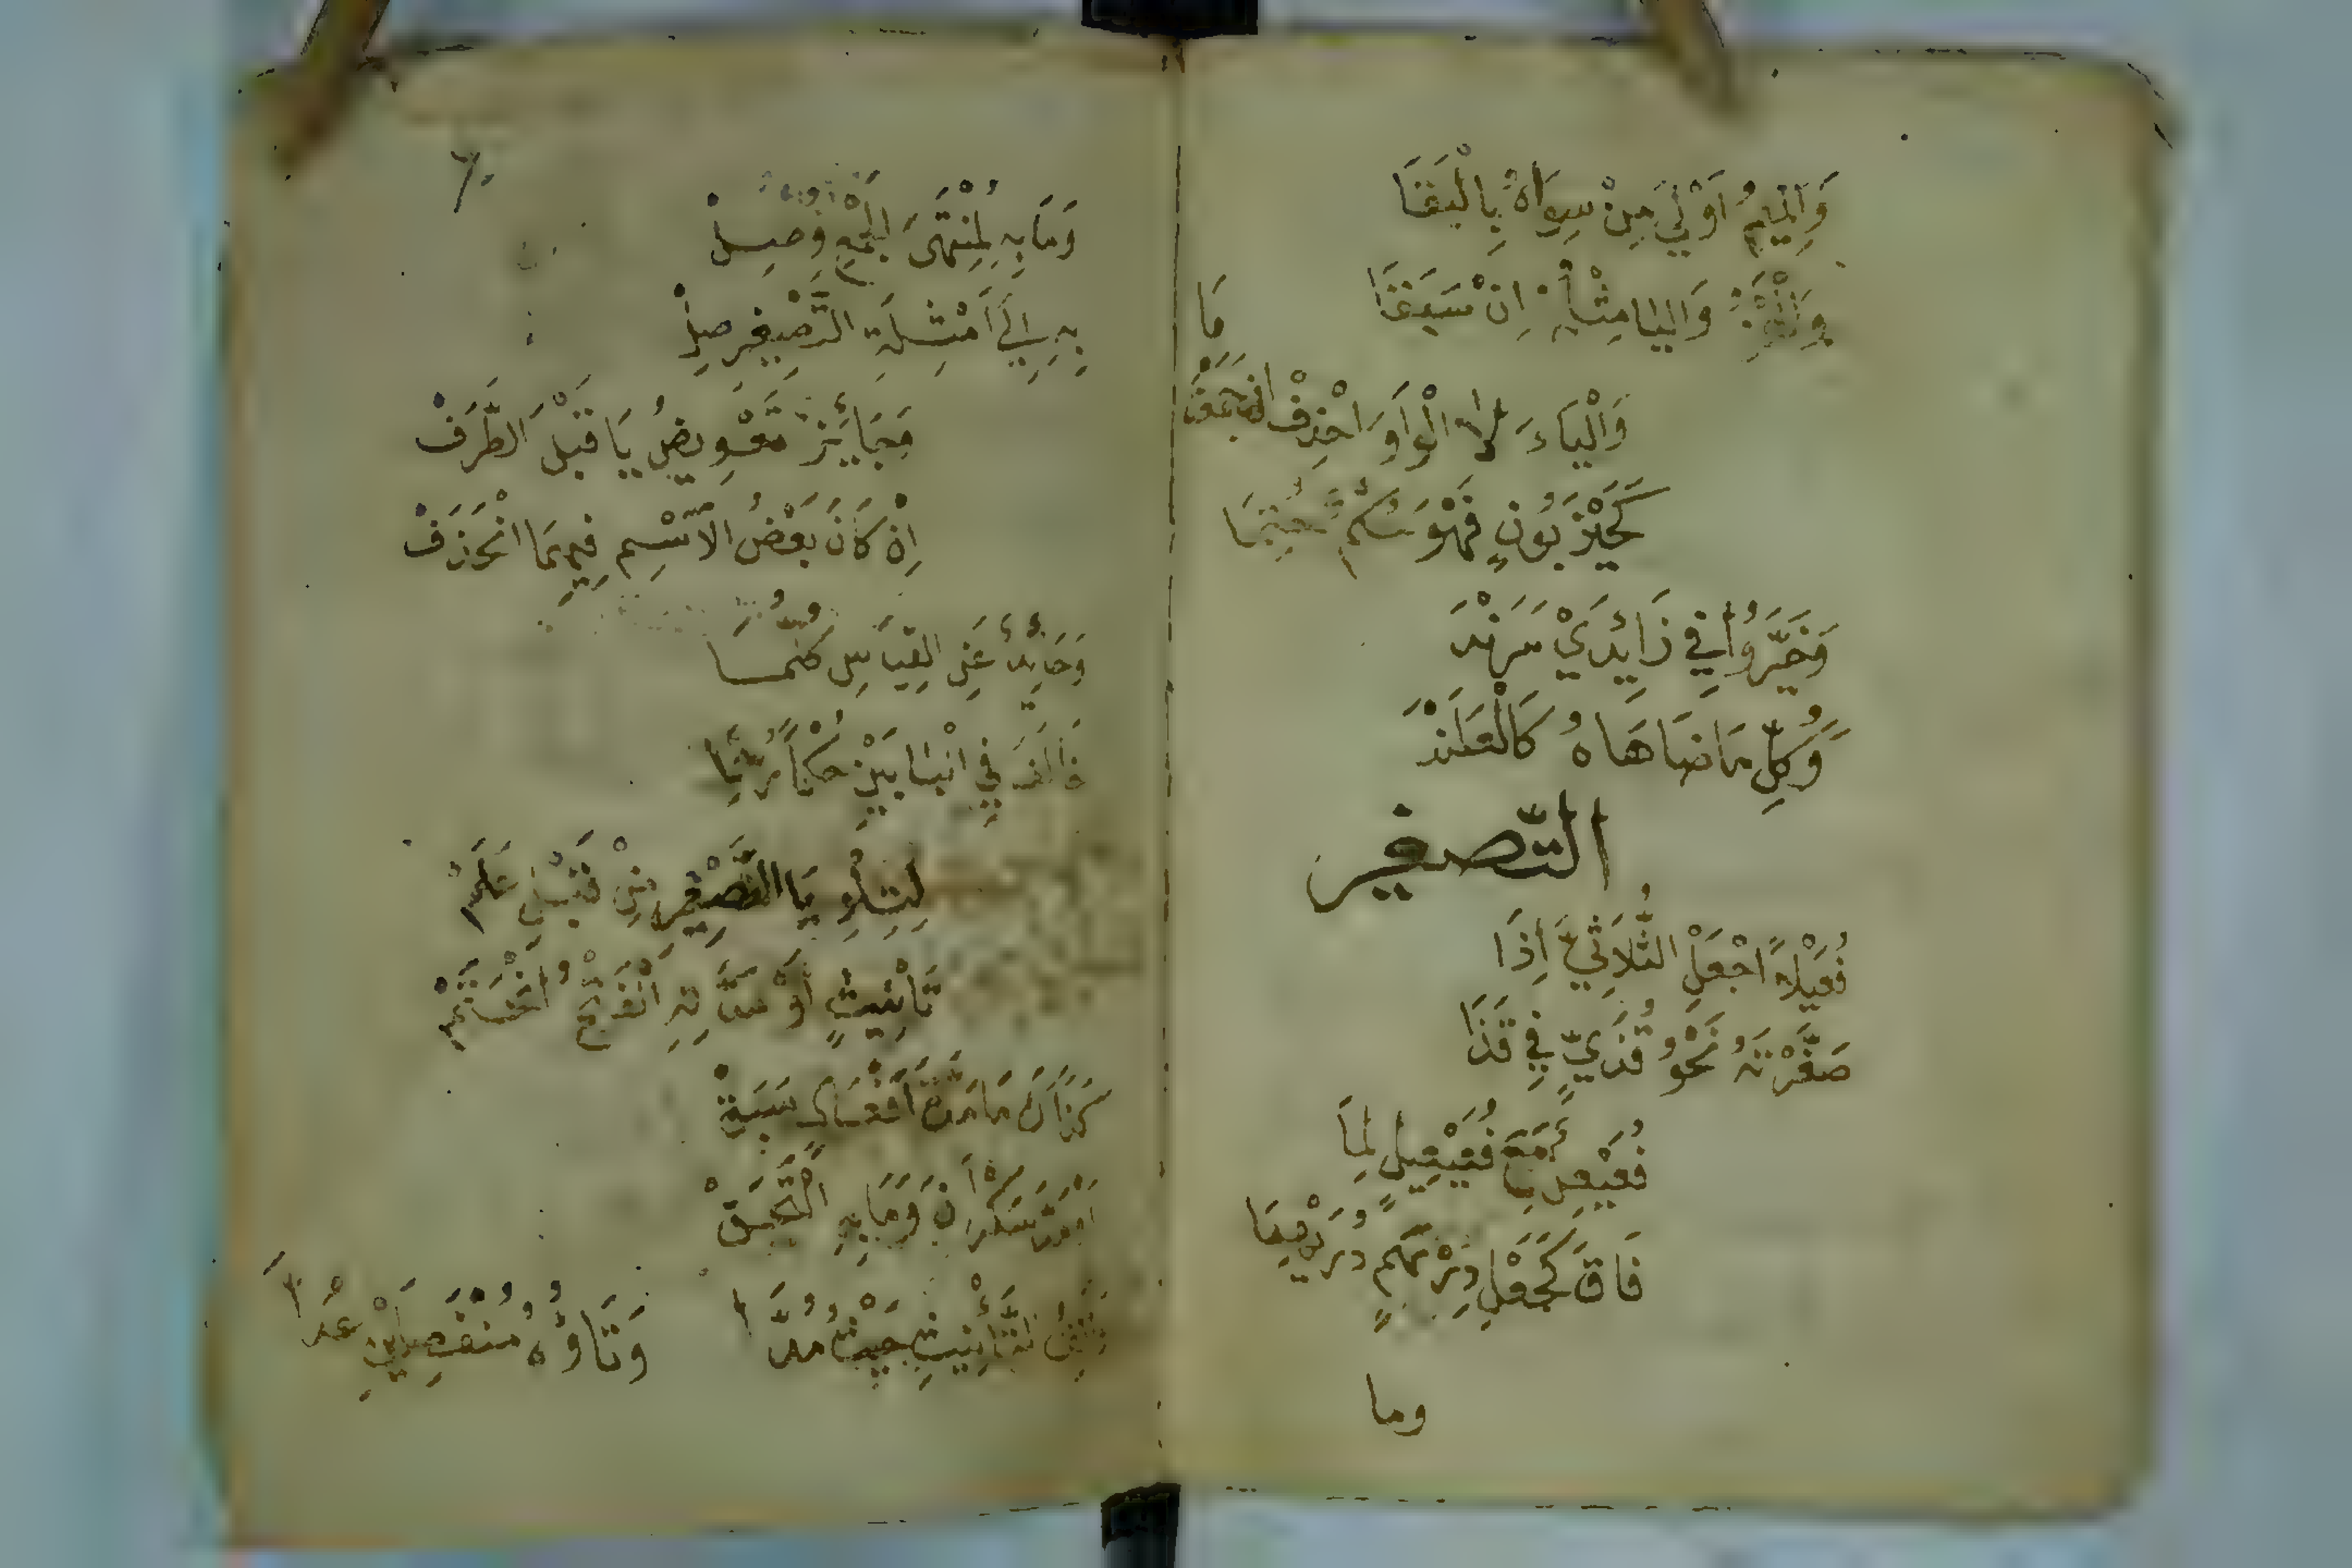 وَالْمِيمُ اَوْلَى مِنْ سِوَاهُ بِالْبَقَا
وَالْهَمْزُ وَالْيَا مِثْلُهُ اِنْ سَبَقَا
وَالْيَاءَ لَا الْوَاوَ احْذِفْ اِنْ جَمَعْتَ مَا
كَحَيْزَبُونٍ فَهْوَ حُكْمٌ حُتِمَا
وَخَيَّرُوا فِي زَائِدَيْ سَرَنْدَى
وَكُلِّ مَا ضَاهَاهُ كَالْعَلَنْدَى
التّصغير
فُعَيْلاً اجْعَلِ الثُّلَاثِيَّ اِذَا
صَغَّرْتَهُ نَحْوُ قُذَيٍّ فِي قَذَا
فُعَيْعِلٌ مَعَ فُعَيْعِيلٍ لِمَا
فَاقَ كَجَعْلِ دِرْهَمٍ دُرَيْهِمَا
وما
وَمَا بِهِ لِمُنْتَهَى الْجَمْعِ وُصِلْ
بِهِ اِلَى اَمْثِلَةِ التَّصْغِيرِ صِلْ
وَجَائِزٌ تَعْوِيضُ يَا قَبْلَ الطَّرَفْ
اِنْ كَانَ بَعْضُ الاِسْمِ فِيهِمَا انْحَذَفْ
وَحَائِدٌ عَنِ الْقِيَاسِ كُلُّ مَا
خَالَفَ فِي الْبَابَيْنِ حُكْمًا رُسِمَا
لِتِلْوِ يَا التَّصْغِيرِ مِنْ قَبْلِ عَلَمْ
تَأْنِيثٍ اَوْ مَدَّتِهِ الْفَتْحُ انْحَتَمْ
كَذَاكَ مَا مَدَّةَ اَفْعَالٍ سَبَقْ
اَوْ مَدَّ سَكْرَانَ وَمَا بِهِ الْتَحَقْ
وَاَلِفُ التَّأْنِيثِ حَيْثُ مُدَّا وَتَاؤُهُ مُنْفَصِلَيْنِ عُدَّا